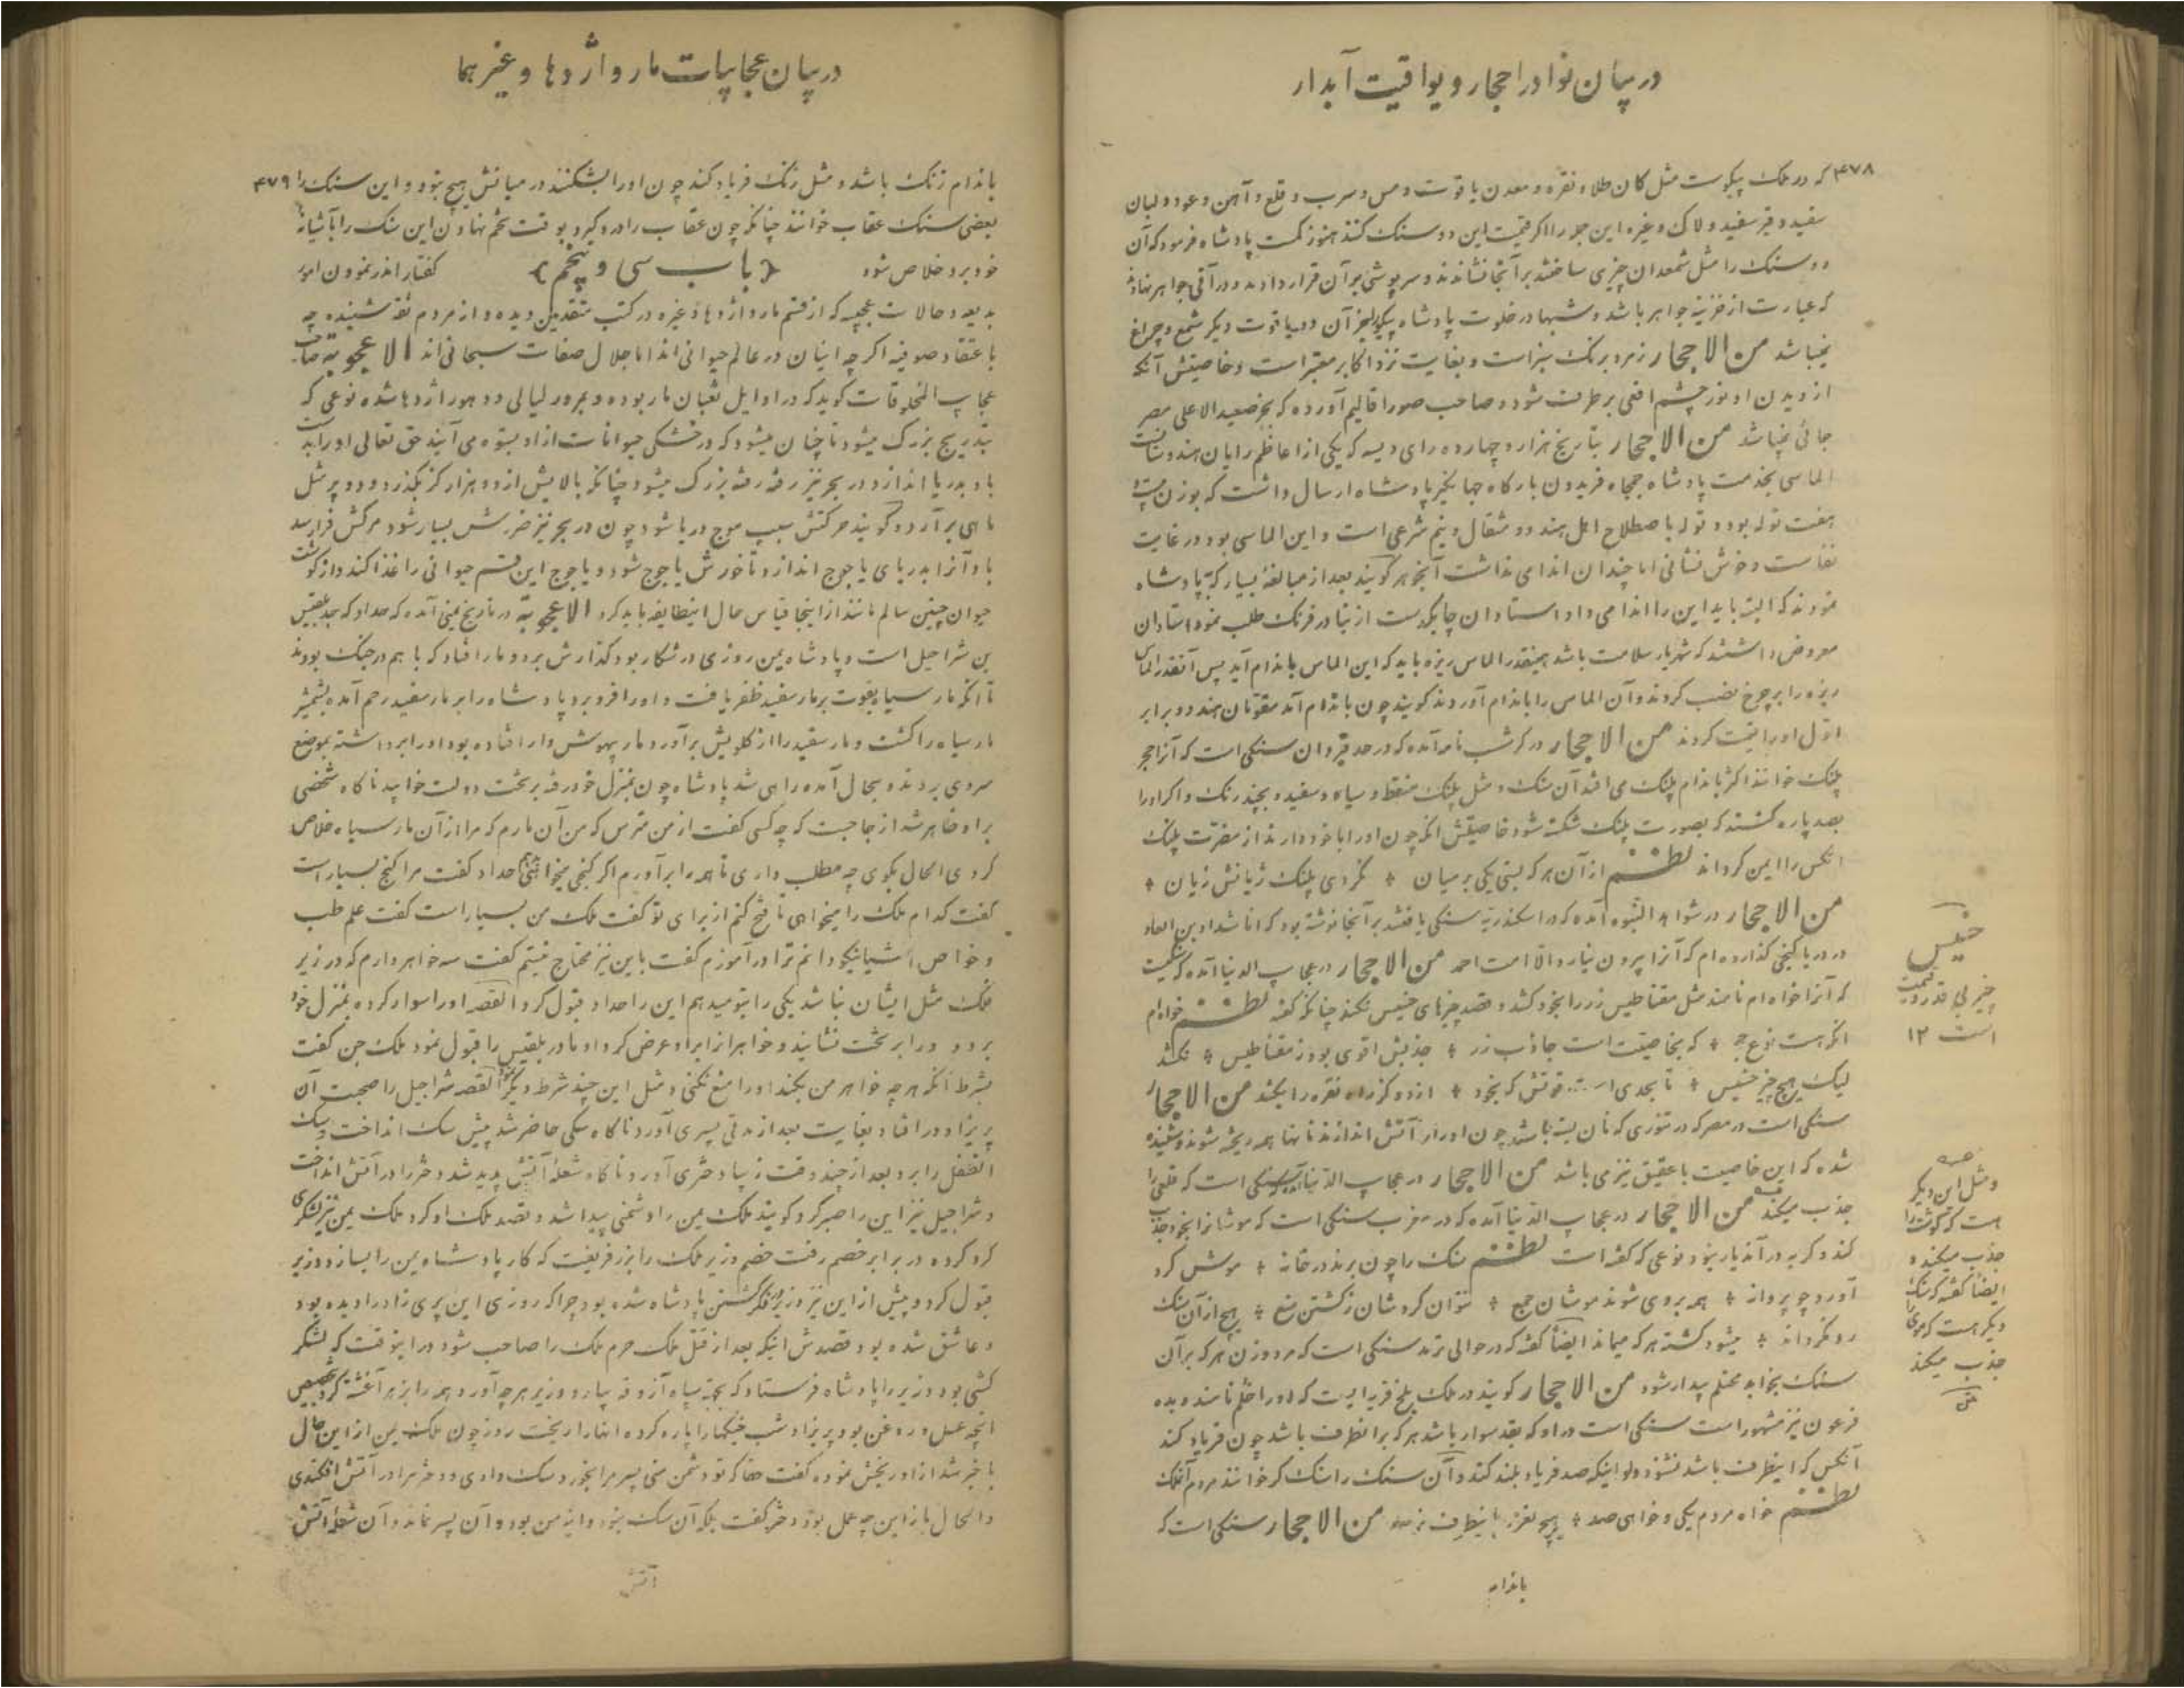 در بیان نوادر احجار و یواقیت آبدار
۴۷۸ که در ملک پیکوست مثل کان طلا و نقره و معدن یاقوت و مس و سرب و قلع و آهن و عود و لبان
سفید و قیر سفید و لاک و غیره این جمله را اگر قیمت این دو سنک کنند هنوز کمست پادشاه فرمود که آن
دو سنک را مثل شمعدان چیزی ساختند بر آنجا نشاندند و سرپوشی بر آن قرار دادند و در آفی جواهر نهادند
که عبارت از خزینه جواهر باشد و شبها در خلوت پادشاه پیکو بغیر آن دو یاقوت دیگر شمع و چراغ
نمیباشد من الاحجار زمرد برنک سبز است و بغایت نزد اکابر معتبر است و خاصیتش آنکه
از دیدن او نور چشم افعی برطرف شود و صاحب صور اقالیم آورده که بجز صعید الاعلی مصر
جائی نمیباشد من الاحجار بتاریخ هزار و چهارده رای ویسه که یکی از اعاظم رایان هندوستانست
الماسی بخدمت پادشاه جمجاه فریدون بارکاه جهانگیر پادشاه ارسال داشت که بوزن بیست و
هفت توله بود و توله باصطلاح اهل هند دو مثقال و نیم شرعی است و این الماسی بود در غایت
نفاست و خوش نشانی اما چندان اندامی نداشت آنجوهر گویند بعد از مبالغه بسیار که پادشاه
نمودند که البته باید این را اندامی داد استادان چابکدست از بنادر فرنک طلب نمود استادان
معروض داشتند که شهریار سلامت باشد همینقدر الماس ریزه باید که این الماس باندام آید پس آنقدر الماس
ریزه را بر چرخ نصب کردند و آن الماس را باندام آوردند گویند چون باندام آمد مقومان هند دو برابر
اول او را قیمت کردند من الاحجار در کرشب نامه آمده که در حد قیروان سنکی است که آنرا حجر
پلنک خوانند اکثر باندام پلنک می افتد آن سنک و مثل پلنک منقط و سیاه و سفید و بچند رنک و اکر او را
بصد پاره کنند که بصورت پلنک شکسته شود خاصیتش آنکه چون او را با خود دارند از مضرت پلنک
آنکس را ایمن کرداند نظم از آن هر که بستی یکی بر میان * نکردی پلنک ژیانش زیان *
من الاحجار در شواهد النبوه آمده که در اسکندریه سنکی یافتند بر آنجا نوشته بود که انا شداد بن العاد
در دریا کنجی گذارده ام که آنرا بیرون نیارد الا امت احمد من الاحجار در عجایب الدنیا آمده که سنکیست
که آنرا خواه ام نامند مثل مقناطیس زر را بخود کشد و قصد چیزهای خسیس نکند چنانکه گفته نظم خواه ام
انکه هست نوع حجر * که بخاصیت است جاذب زر * جذبش اقوی بود ز مقناطیس * نکشد
لیک هیچ چیز خسیس * تا بحدی است قوتش که بخود * از دو گز راه نقره را بکشد من الاحجار
سنکی است در مصر که در تنوری که نان بسته باشند چون او را در آتش اندازند نانها همه ریخته شوند و شنیده
شده که این خاصیت با عقیق نیز می باشد من الاحجار در عجایب الدنیا سنکی است که قلعی را
جذب میکند من الاحجار در عجایب الدنیا آمده که در مغرب سنکی است که موشانرا بخود جذب
کند و کربه در آندیار نبود نوعی که گفته است نظم سنک را چون برند در خانه * موش کرد
آورد چو پروانه * همه بروی شوند موشان جمع * نتوان کردشان ز کشتن منع * هیچ از آن سنک
رو نکرداند * میشود کشته هر که میماند ایضا گفته که در حوالی ترند سنکی است که مرد و زن هر که بر آن
سنک بخوابد محتلم بیدار شود من الاحجار گویند در ملک بلخ قریه ایست که او را خلم نامند و بده
فرعون نیز مشهور است سنکی است در او که بقد سوار باشد هر که بر آنطرف باشد چون فریاد کند
آنکس که اینطرف باشد نشنود ولو اینکه صد فریاد بلند کند و آن سنک را سنک کر خوانند مردم آنملک
نظم خواه مردم یکی و خواهی صد * هیچ نعره باینطرف نرسد من الاحجار سنکی است که
باندام
خسیس
چیز بی قدر و قیمت
است ۱۲
و مثل این دیگر
است که گوشت را
جذب میکند و
ایضا گفته که سنک
دیگر هست که موی را
جذب میکند
در بیان عجایبات مار و اژدها و غیرهما
باندام زنک باشد و مثل زنک فریاد کند چون او را بشکنند در میانش هیچ نبود و این سنک را ۴۷۹
بعضی سنک عقاب خوانند چنانکه چون عقاب را درد گیرد بوقت تخم نهادن این سنک را بآشیانه
خود برد خلاص شود {باب سی و پنجم} کفتار اندر نمودن امور
بدیعه و حالات عجیبه که از قسم مار و اژدها و غیره در کتب متقدمین دیده و از مردم ثقه شنیده چه
باعتقاد صوفیه اکرچه اینان در عالم حیوانی اند اما جلال صفات سبحانی اند الاعجوبة صاحب
عجایب المخلوقات کوید که در اوایل ثعبان مار بوده و بمرور لیالی و دهور اژدها شده نوعی که
بتدریج بزرک میشود تا چنان میشود که در خشکی حیوانات از او بستوه می آیند حق تعالی او را بدست
باد بدریا اندازد و در بحر نیز رفته رفته بزرک میشود چنانکه بالایش از ده هزار کز بگذرد و دو پر مثل
ماهی بر آرد و گویند حرکتش سبب موج دریا شود چون در بحر نیز ضررش بسیار شود مرکش فرا رسد
باد آنرا بدریای یاجوج اندازد تا خورش یاجوج شود و یاجوج این قسم حیوانی را غذا کند و از کوشت
حیوان چنین سالم مانند از اینجا قیاس حال اینطایفه باید کرد الاعجوبة در تاریخ یمنی آمده که حداد که جد بلقیس
بن شراحیل است و پادشاه یمن روزی در شکار بود گذارش بر دو مار افتاد که با هم در جنک بودند
تا آنکه مار سیاه بقوت بر مار سفید ظفر یافت و او را فرو برد پادشاه را بر مار سفید رحم آمده بشمشیر
مار سیاه را کشت و مار سفید را از کلویش بر آورد مار بیهوش وار افتاده بود او را برداشته بموضع
سردی بردند و بحال آمده راهی شد پادشاه چون بمنزل خود رفته بر تخت دولت خوابید ناکاه شخصی
بر او ظاهر شد از جا جست که چه کسی گفت از من مترس که من آن مارم که مرا از آن مار سیاه خلاص
کردی الحال بگوی چه مطلب داری تا همه را بر آورم اکر کنجی میخواهی حداد کفت مرا کنج بسیار است
گفت کدام ملک را میخواهی تا فتح کنم از برای تو گفت ملک من بسیار است گفت علم طب
و خواص اشیا نیکو دانم ترا در آموزم گفت باین نیز محتاج نیستم گفت سه خواهر دارم که در زیر
فلک مثل ایشان نباشد یکی را بتو میدهم این را حداد قبول کرد القصه او را سوار کرده بمنزل خود
برد و در ابر تخت نشانید و خواهر انرا بر او عرض کرد او مادر بلقیس را قبول نمود ملک جن گفت
بشرط آنکه هر چه خواهر من بکند او را منع نکنی و مثل این چند شرط دیگر القصه شراحیل را صحبت آن
پریزاد در افتاد بغایت بعد از مدتی پسری آورد ناکاه سکی حاضر شد پیش سک انداخت و سک
آنطفل را برد بعد از چند وقت زیبا دختری آورد ناکاه شعله آتش پدید شد دختر را در آتش انداخت
و شراحیل نیز این را صبر کرد گویند ملک یمن را دشمنی پیدا شد و قصد ملک او کرد ملک یمن نیز لشکری
کرد کرده در برابر خصم رفت خصم وزیر ملک را بزر فریفت که کار پادشاه یمن را بسازد وزیر
قبول کرد و پیش از این نیز وزیر در فکر کشتن پادشاه شده بود چرا که روزی این پری زاد را دیده بود
و عاشق شده بود و قصدش اینکه بعد از قتل ملک حرم ملک را صاحب شود در اینوقت که لشکر
کشی بود وزیر را پادشاه فرستاد که بجهة سپاه آزوقه بیارد وزیر هر چه آورد همه را بزهر آغشته کرد بتخصیص
آنچه عسل و روغن بود پریزاد شب خیکها را پاره کرده آنها را ریخت روز چون ملک یمن از این حال
با خبر شد از او رنجش نموده گفت حقا که تو دشمن منی پسر مرا بخورد سک دادی و دختر مرا در آتش افکندی
و الحال باز این چه عمل بود دختر گفت بلکه آن سک نبود و دایه من بود و آن پسر نماند و آن شعله آتش
آتش